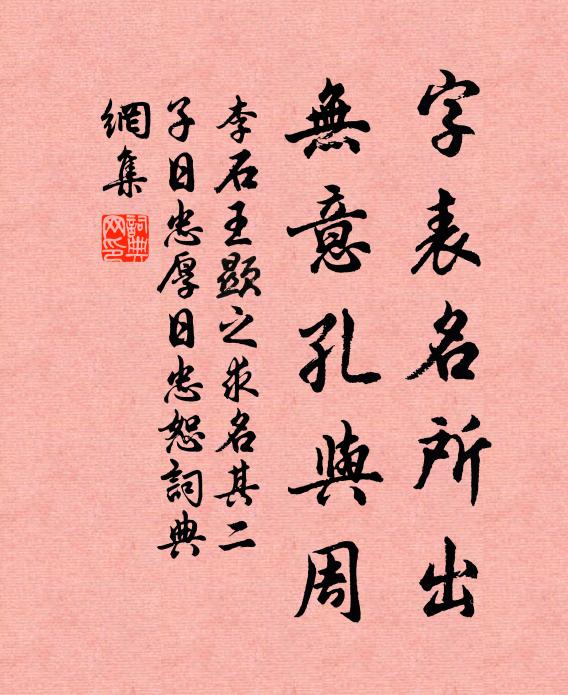 字表名所出
無意孔與周
李石王顯之求名其二
子日忠厚日忠恕詞典
網集
詞典网印